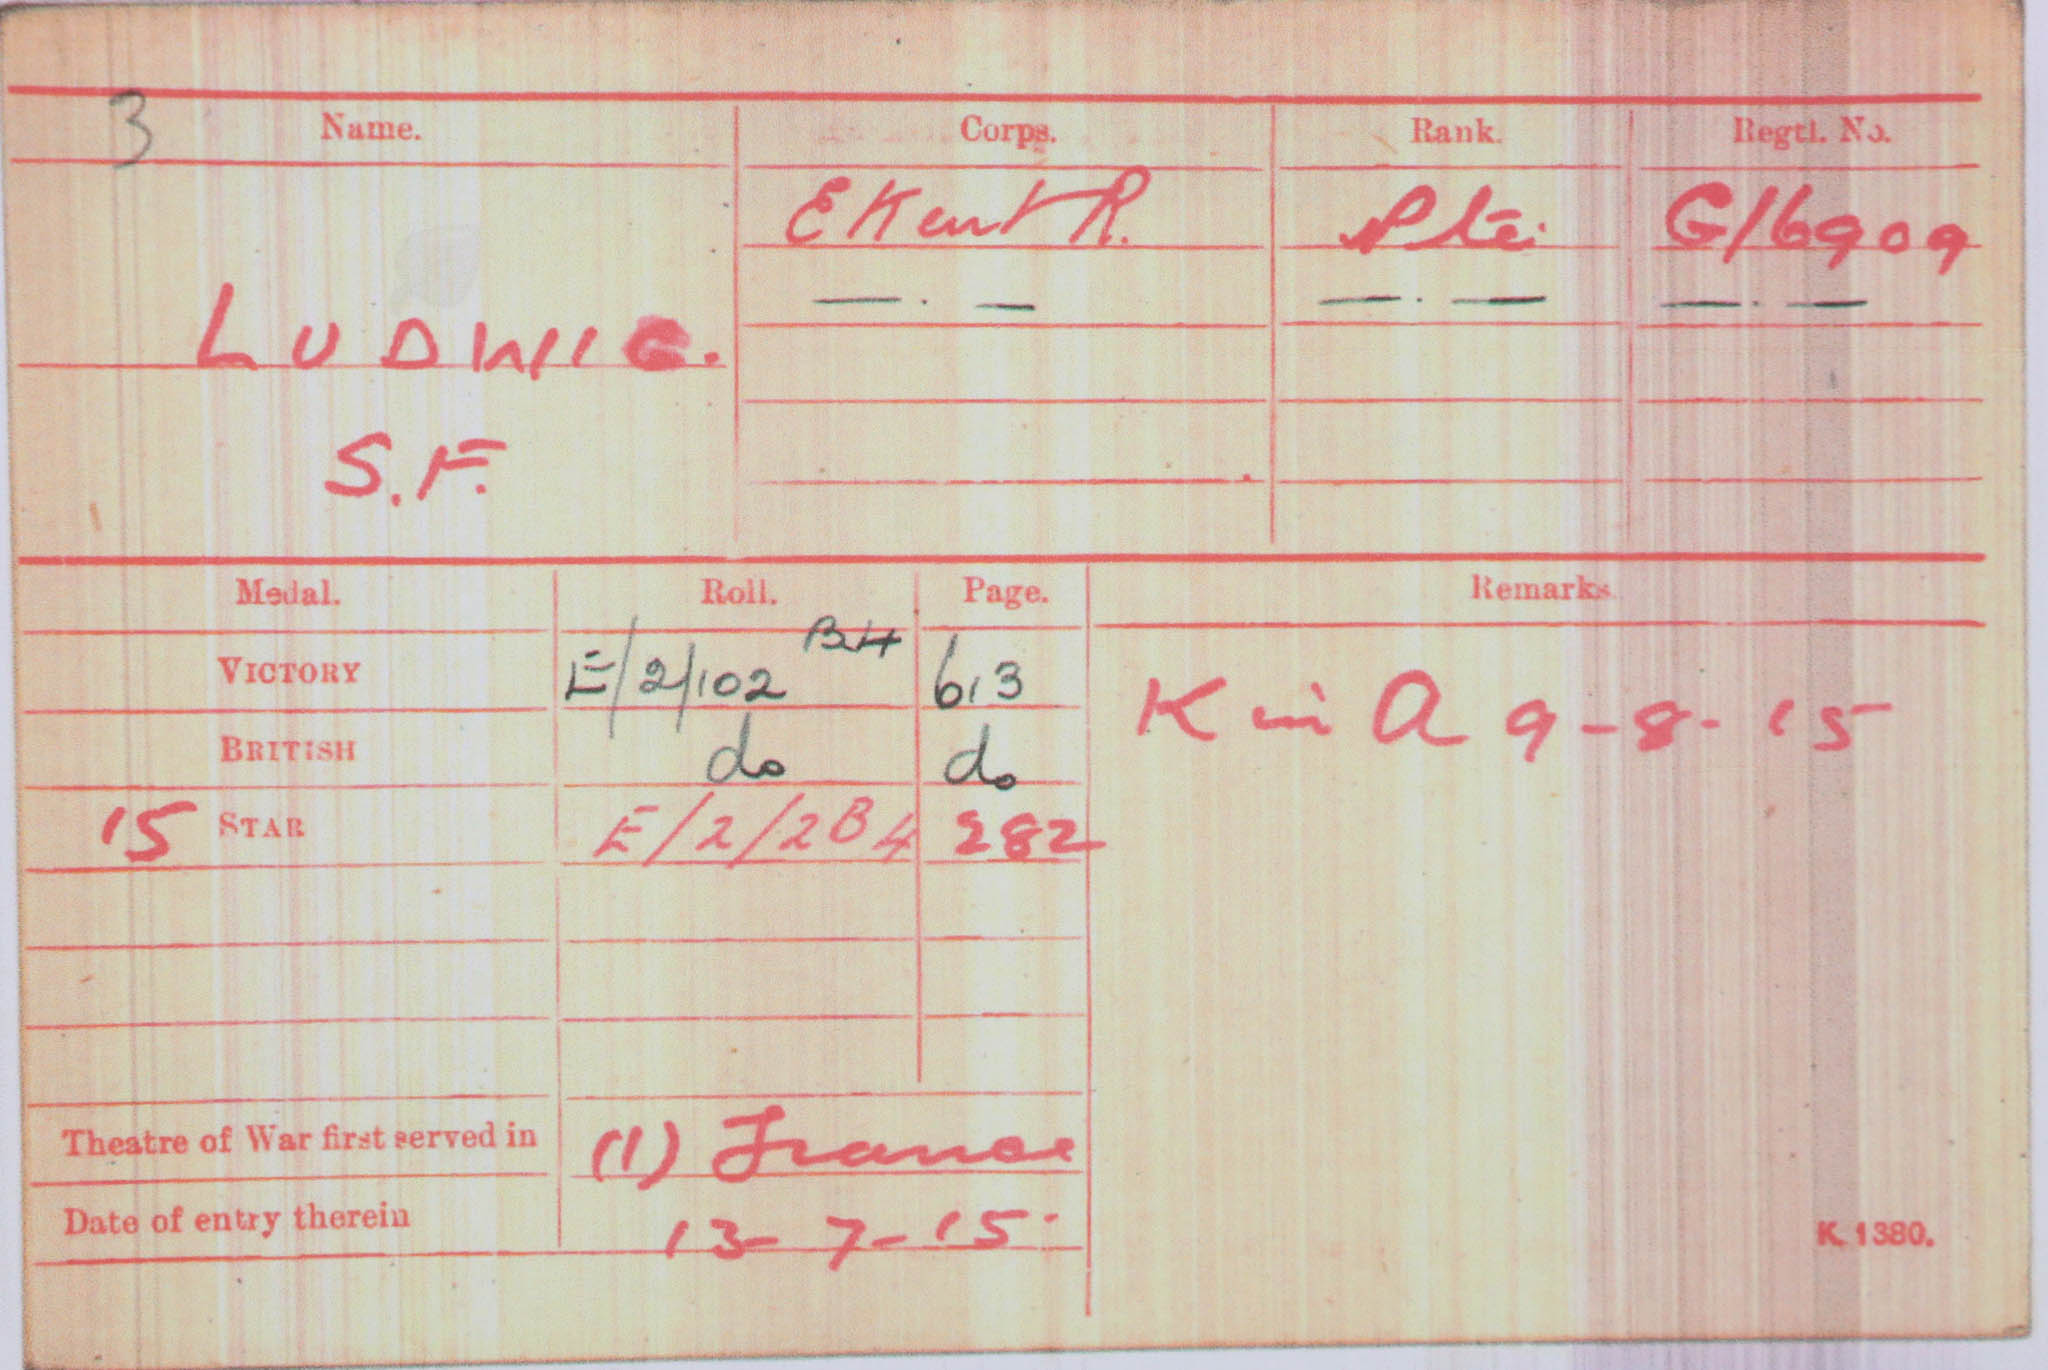 3 Name. Corps. Rank. Regtl. No.
E Kent R. Pte. G/6909
—.— —.— —.—
LUDWIG.
S.F.
Medal. Roll. Page. Remarks.
VICTORY E/2/102 B4 613
K in A 9-8-15
BRITISH do do
15 STAR E/2/2B4 282
Theatre of War first served in (1) France
Date of entry therein 13-7-15.
K. 1380.